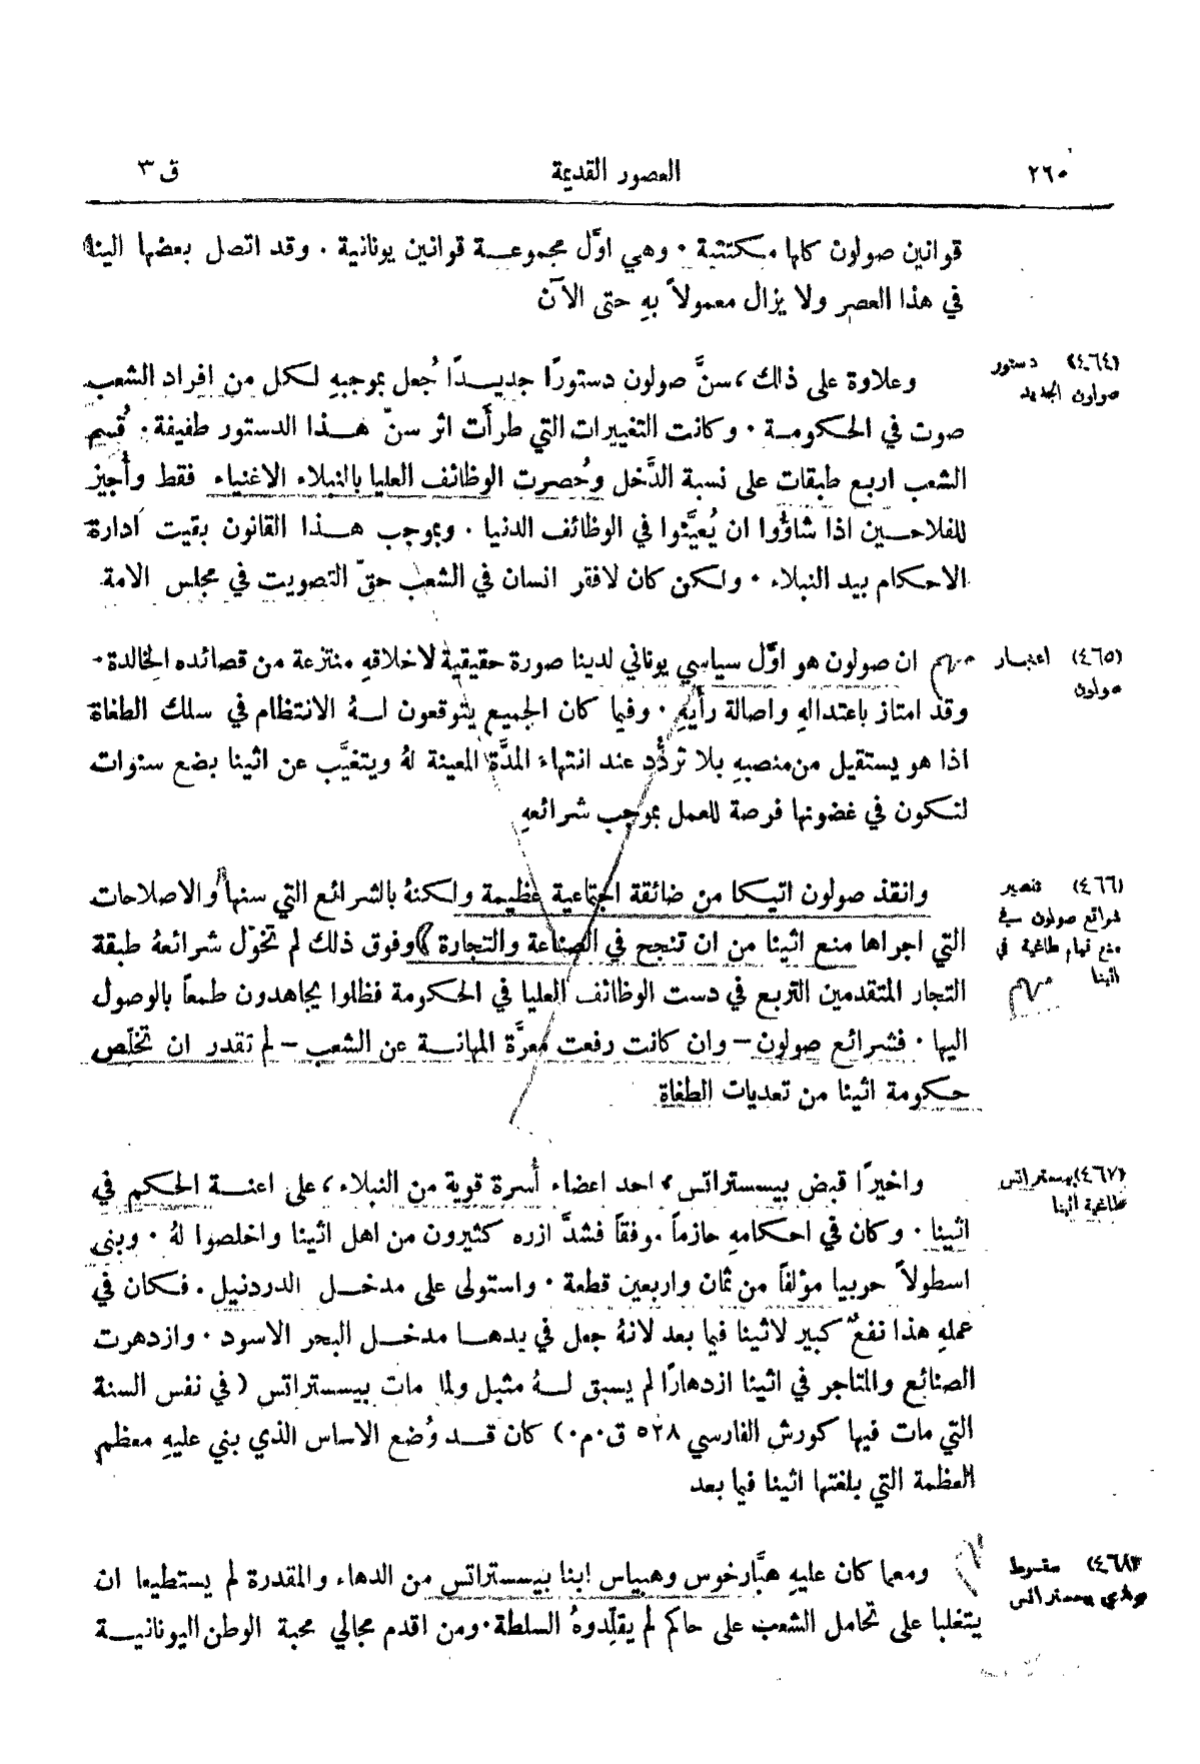 ٢٦٠ العصور القديمة ق ٣
قوانين صولون كلها مكتتبة ٠ وهي اوَّل مجموعة قوانين يونانية ٠ وقد اتصل بعضها الينا
في هذا العصر ولا يزال معمولاً بهِ حتى الآن
(٤٦٤) دستور
صولون الجديد
وعلاوة على ذلك، سنَّ صولون دستورًا جديدًا جُعل بموجبهِ لكل من افراد الشعب
صوت في الحكومة ٠ وكانت التغييرات التي طرأَت اثر سنّ هذا الدستور طفيفة ٠ قُسم
الشعب اربع طبقات على نسبة الدَّخل وحُصرت الوظائف العليا بالنبلاء الاغنياء فقط وأُجيز
للفلاحين اذا شاؤُوا ان يُعيَّنوا في الوظائف الدنيا ٠ وبموجب هذا القانون بقيت ادارة
الاحكام بيد النبلاء ٠ ولكن كان لافقر انسان في الشعب حقّ التصويت في مجلس الامة
(٤٦٥) اعتبار
صولون
ان صولون هو اوَّل سياسي يوناني لدينا صورة حقيقية لاخلاقهِ منتزعة من قصائده الخالدة ٠
وقد امتاز باعتدالهِ واصالة رأيهِ ٠ وفيما كان الجميع يتوقعون لهُ الانتظام في سلك الطغاة
اذا هو يستقيل من منصبهِ بلا تردُّد عند انتهاء المدَّة المعينة لهُ ويتغيَّب عن اثينا بضع سنوات
لتكون في غضونها فرصة للعمل بموجب شرائعهِ
(٤٦٦) تقصير
شرائع صولون في
منع قيام طاغية في
اثينا
وانقذ صولون اتيكا من ضائقة اجتماعية عظيمة ولكنهُ بالشرائع التي سنها والاصلاحات
التي اجراها منع اثينا من ان تنجح في الصناعة والتجارة وفوق ذلك لم تخوّل شرائعهُ طبقة
التجار المتقدمين التربع في دست الوظائف العليا في الحكومة فظلوا يجاهدون طمعاً بالوصول
اليها ٠ فشرائع صولون – وان كانت رفعت معرَّة المهانة عن الشعب – لم تقدر ان تخلّص
حكومة اثينا من تعديات الطغاة
(٤٦٧) بيسستراتس
طاغية اثينا
واخيرًا قبض بيسستراتس، احد اعضاء أُسرة قوية من النبلاء، على اعنة الحكم في
اثينا ٠ وكان في احكامهِ حازماً موفقاً فشدَّ ازره كثيرون من اهل اثينا واخلصوا لهُ ٠ وبنى
اسطولاً حربيا مؤلفاً من ثمان واربعين قطعة ٠ واستولى على مدخل الدردنيل ٠ فكان في
عملهِ هذا نفعٌ كبير لاثينا فيما بعد لانهُ جعل في يدها مدخل البحر الاسود ٠ وازدهرت
الصنائع والمتاجر في اثينا ازدهارًا لم يسبق لهُ مثيل ولما مات بيسستراتس (في نفس السنة
التي مات فيها كورش الفارسي ٥٢٨ ق٠م٠) كان قد وُضع الاساس الذي بني عليهِ معظم
العظمة التي بلغتها اثينا فيما بعد
(٤٦٨) سقوط
ولدي بيسستراتس
ومهما كان عليهِ هبَّارخوس وهيباس ابنا بيسستراتس من الدهاء والمقدرة لم يستطيعا ان
يتغلبا على تحامل الشعب على حاكم لم يقلّدوهُ السلطة ٠ ومن اقدم مجالي محبة الوطن اليونانية